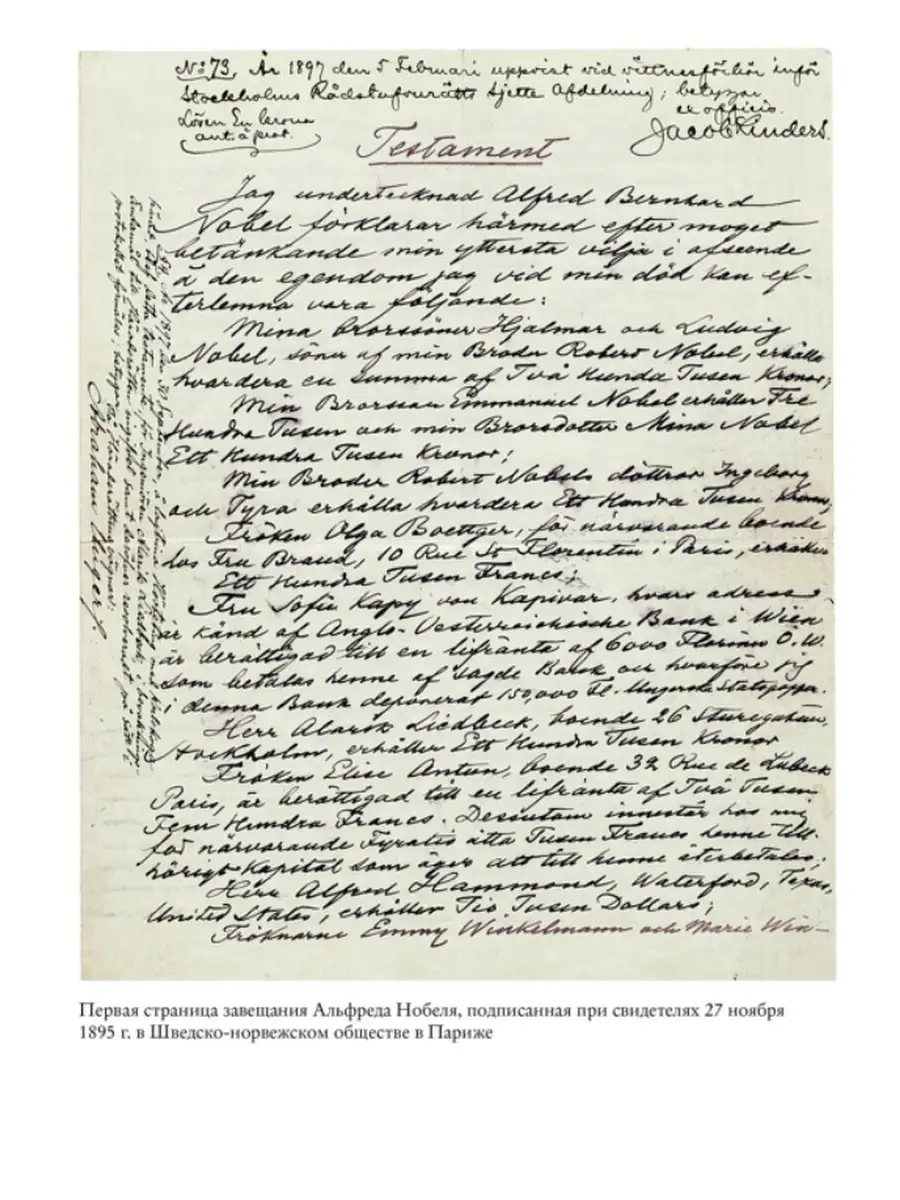 No 73. År 1897 den 5 Februari uppvist vid vittnesförhör inför
Stockholms Rådstufvurätts sjette Afdelning; betygar
ex officio.
Lösen En krona
Jacob Enders.
Testament
Jag undertecknad Alfred Bernhard
Nobel förklarar härmed efter moget
betänkande min yttersta vilja i afseende
å den egendom jag vid min död kan ef-
terlemna vara följande:
Mina brorssöner Hjalmar och Ludvig
Nobel, söner af min Broder Robert Nobel, erhålla
hvardera en summa af Två Hundra Tusen Kronor;
Min Brorson Emmanuel Nobel erhåller Tre
Hundra Tusen och min Brorsdotter Mina Nobel
Ett Hundra Tusen Kronor;
Min Broder Robert Nobels döttrar Ingeborg
och Tyra erhålla hvardera Ett Hundra Tusen Kronor;
Fröken Olga Boettger, för närvarande boende
hos Fru Brand, 10 Rue St Florentin i Paris, erhåller
Ett Hundra Tusen Francs;
Fru Sofie Kapy von Kapivar, hvars adress
är känd af Anglo-Oesterreichische Bank i Wien
är berättigad till en lifränta af 6000 Florins Ö.W.
som betalas henne af sagde Bank och hvarföre jag
i denna Bank deponerat 150,000 Fl. i Ungerska Statspapper.
Herr Alarik Liedbeck, boende 26 Sturegatan,
Stockholm, erhåller Ett Hundra Tusen Kronor
Fröken Elise Antun, boende 32 Rue de Lubeck
Paris, är berättigad till en lifränta af Två Tusen
Fem Hundra Francs. Dessutom innestår hos mig
för närvarande Fyratio åtta Tusen Francs henne till-
hörigt Kapital som äger att till henne återbetalas;
Herr Alfred Hammond, Waterford, Texas,
United States, erhåller Tio Tusen Dollars;
Fröknarne Emmy Winkelmann och Marie Win-
Abraham Unger.
Первая страница завещания Альфреда Нобеля, подписанная при свидетелях 27 ноября
1895 г. в Шведско-норвежском обществе в Париже